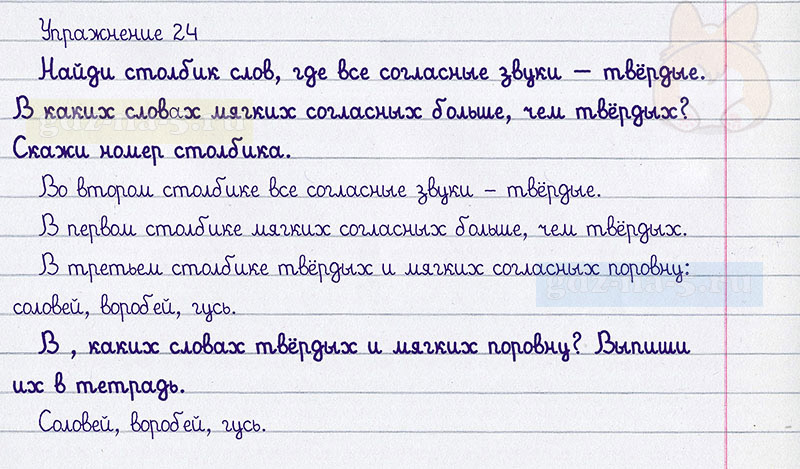 Упражнение 24
Найди столбик слов, где все согласные звуки – твёрдые.
В каких словах мягких согласных больше, чем твёрдых?
Скажи номер столбика.
Во втором столбике все согласные звуки – твёрдые.
В первом столбике мягких согласных больше, чем твёрдых.
В третьем столбике твёрдых и мягких согласных поровну:
соловей, воробей, гусь.
В , каких словах твёрдых и мягких поровну? Выпиши
их в тетрадь.
Соловей, воробей, гусь.
gdz-na-5.ru
gdz-na-5.ru